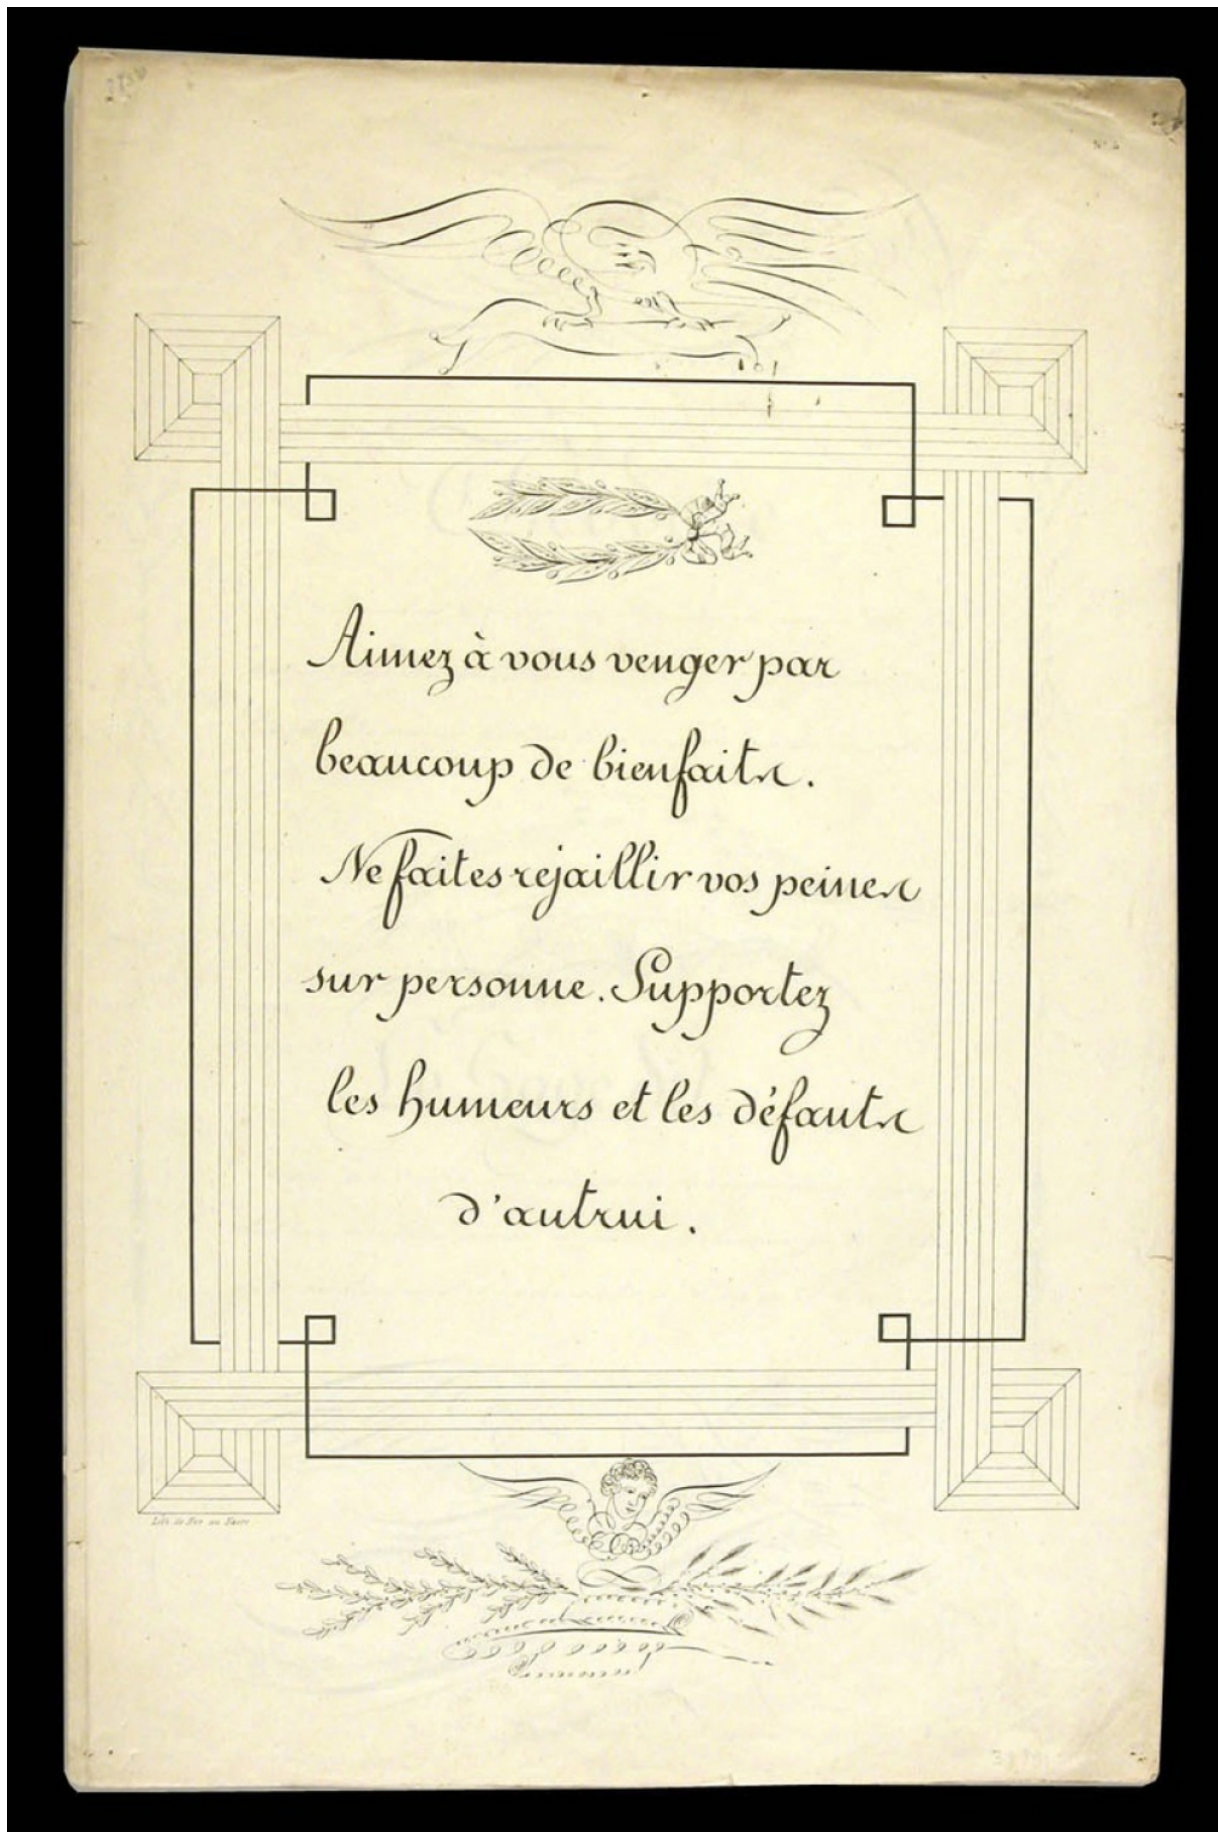 Aimez à vous venger par
beaucoup de bienfaits.
Ne faites rejaillir vos peines
sur personne. Supportez
les humeurs et les défauts
d'autrui.